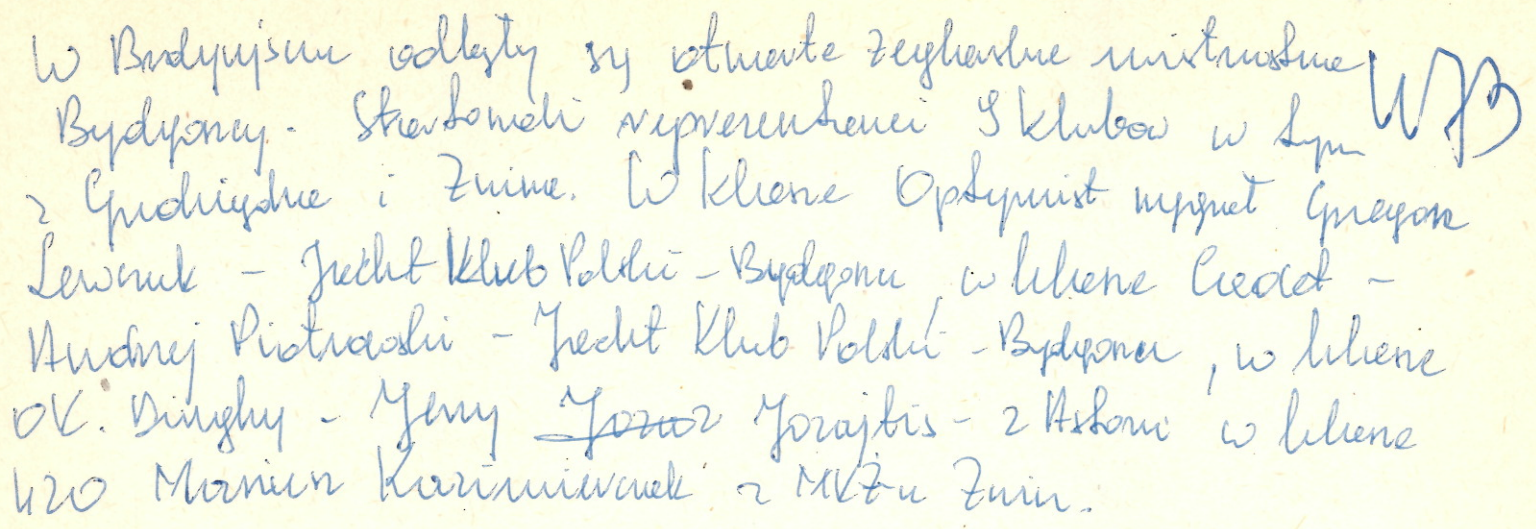 W Brdyujściu odbyły się otwarte żeglarskie mistrzostwa
Bydgoszczy. Startowali reprezentanci 9 klubów w tym
z Grudziądza i Żnina. W klasie Optymist wygrał Grzegorz
Lewczuk - Jacht Klub Polski - Bydgoszcz, w klasie Cadet -
Andrzej Piotrowski - Jacht Klub Polski - Bydgoszcz, w klasie
OK. Dinghy - Jerzy Jorajtis - z Astorii w klasie
420 Mariusz Kazimierczak z MKŻ-u Żnin.